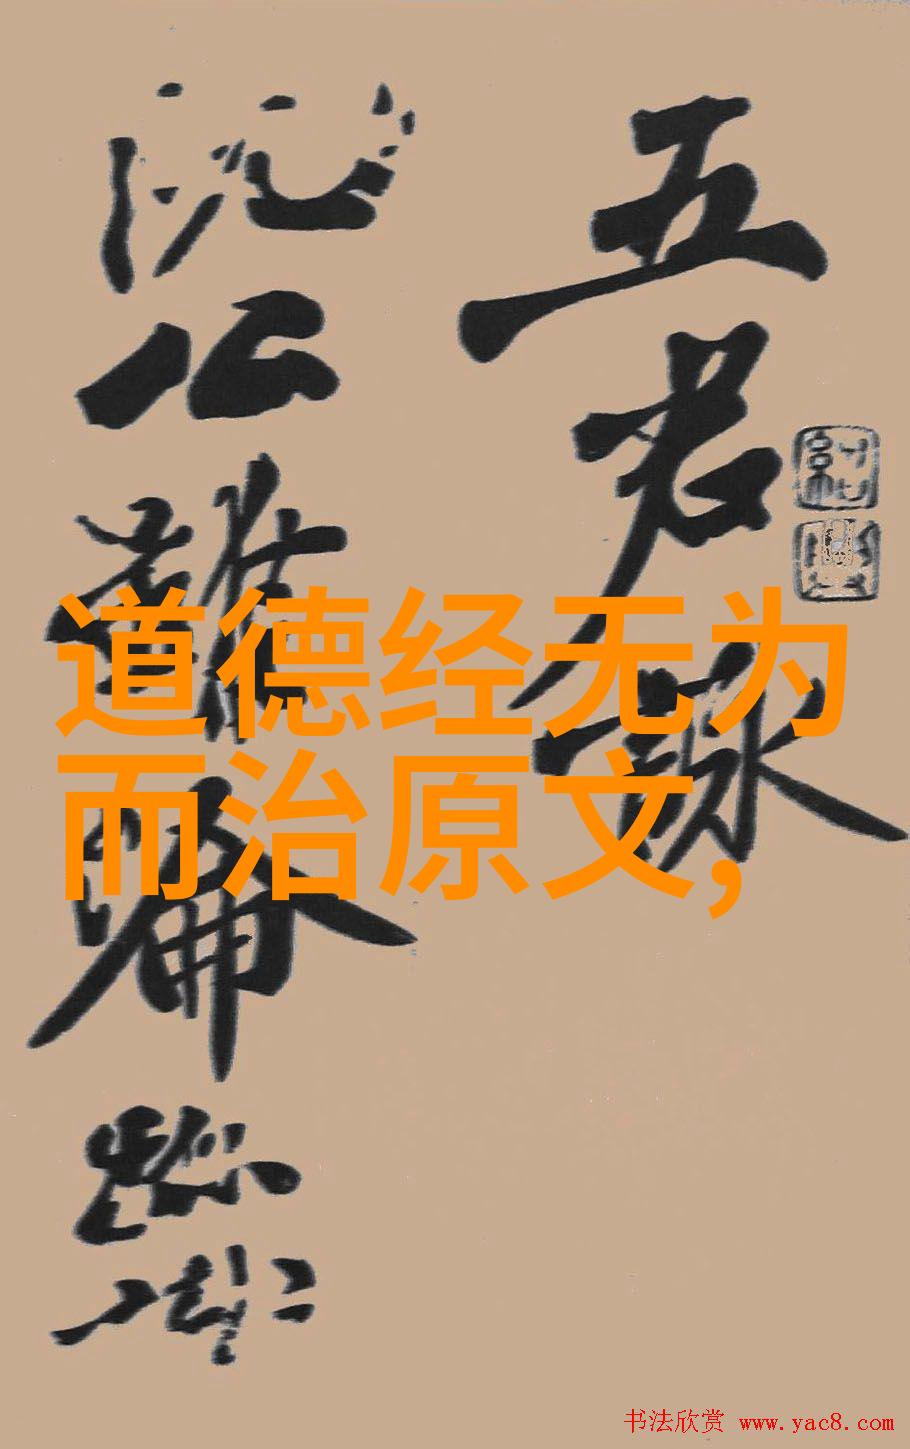 五君詠
阮公雖淪跡
道德经无为
而治原文,
书法欣赏 www.yac8.com